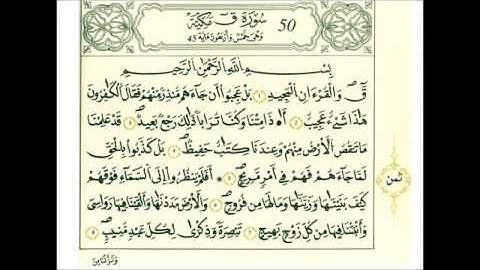 سُورَةُ قٓ مَكِّيَّة 50
وَهِيَ خَمْسٌ وَأَرْبَعُونَ ءَايَة 45
بِسْمِ اللَّهِ الرَّحْمَٰنِ الرَّحِيمِ
قٓ وَالْقُرْءَانِ الْمَجِيدِ ١ بَلْ عَجِبُوٓاْ أَن جَآءَهُم مُّنذِرٌ مِّنْهُمْ فَقَالَ الْكَٰفِرُونَ
هَٰذَا شَيْءٌ عَجِيبٌ ٢ أَ۟ذَا مِتْنَا وَكُنَّا تُرَاباً ذَٰلِكَ رَجْعٌ بَعِيدٌ ٣ قَدْ عَلِمْنَا
مَا تَنقُصُ الْأَرْضُ مِنْهُمْ وَعِندَنَا كِتَٰبٌ حَفِيظٌ ٤ بَلْ كَذَّبُواْ بِالْحَقِّ
لَمَّا جَآءَهُمْ فَهُمْ فِےٓ أَمْرٍ مَّرِيجٍ ٥ أَفَلَمْ يَنظُرُوٓاْ إِلَى السَّمَآءِ فَوْقَهُمْ
ثمن
كَيْفَ بَنَيْنَٰهَا وَزَيَّنَّٰهَا وَمَا لَهَا مِن فُرُوجٍ ٦ وَالْأَرْضَ مَدَدْنَٰهَا وَأَلْقَيْنَا فِيهَا رَوَٰسِيَ
وَأَنۢبَتْنَا فِيهَا مِن كُلِّ زَوْجٍۭ بَهِيجٍ ٧ تَبْصِرَةً وَذِكْرَىٰ لِكُلِّ عَبْدٍ مُّنِيبٍ ٨
وَنَزَّلْنَا مِنَ